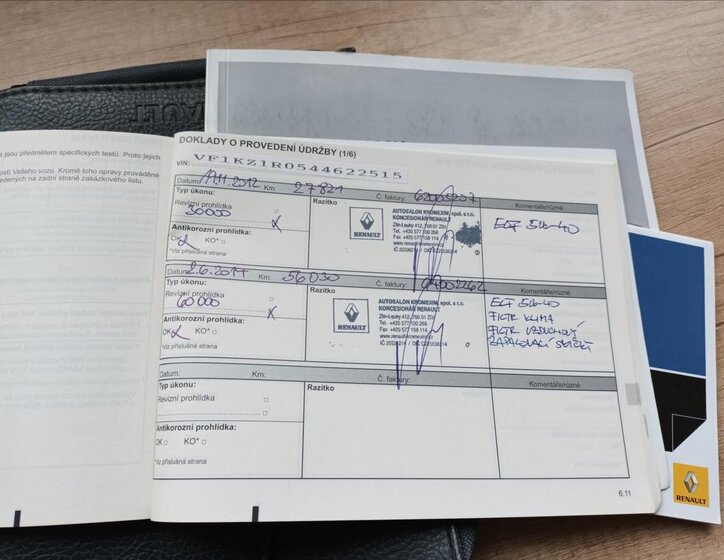 RENAULT
a jsou předmětem specifických testů. Proto jejich
osti Vašeho vozu. Kromě toho opravy prováděné
edených na zadní straně zakázkového listu.
DOKLADY O PROVEDENÍ ÚDRŽBY (1/6)
VIN: VF1KZ1R0544622515
Datum: 2012 Km: 27821 Č. faktury: Komentáře/různé
Typ úkonu: Razítko
Revizní prohlídka
30000 X
Antikorozní prohlídka:
OK KO*
*Viz příslušná strana
RENAULT
AUTOSALON KROMEXIM, spol. s r.o.
KONCESIONÁŘ RENAULT
Zlín-Louky 412, 760 01 Zlín
Tel. +420 577 100 268
Fax +420 577 158 114
IČ 25536214
ELF 5W-40
Datum: 2.6.2014 Km: 56030 Č. faktury: Komentáře/různé
Typ úkonu: Razítko
Revizní prohlídka
60000 X
Antikorozní prohlídka:
OK KO*
*Viz příslušná strana
RENAULT
AUTOSALON KROMEXIM, spol. s r.o.
KONCESIONÁŘ RENAULT
Zlín-Louky 412, 760 01 Zlín
Tel. +420 577 100 268
Fax +420 577 158 114
IČ 25536214
ELF 5W-40
FILTR KLIMA
FILTR VZDUCHOVÝ
ZAPALOVACÍ SVÍČKY
Datum: Km: Č. faktury: Komentáře/různé
Typ úkonu: Razítko
Revizní prohlídka
Antikorozní prohlídka:
OK KO*
*Viz příslušná strana
6.11
RENAULT